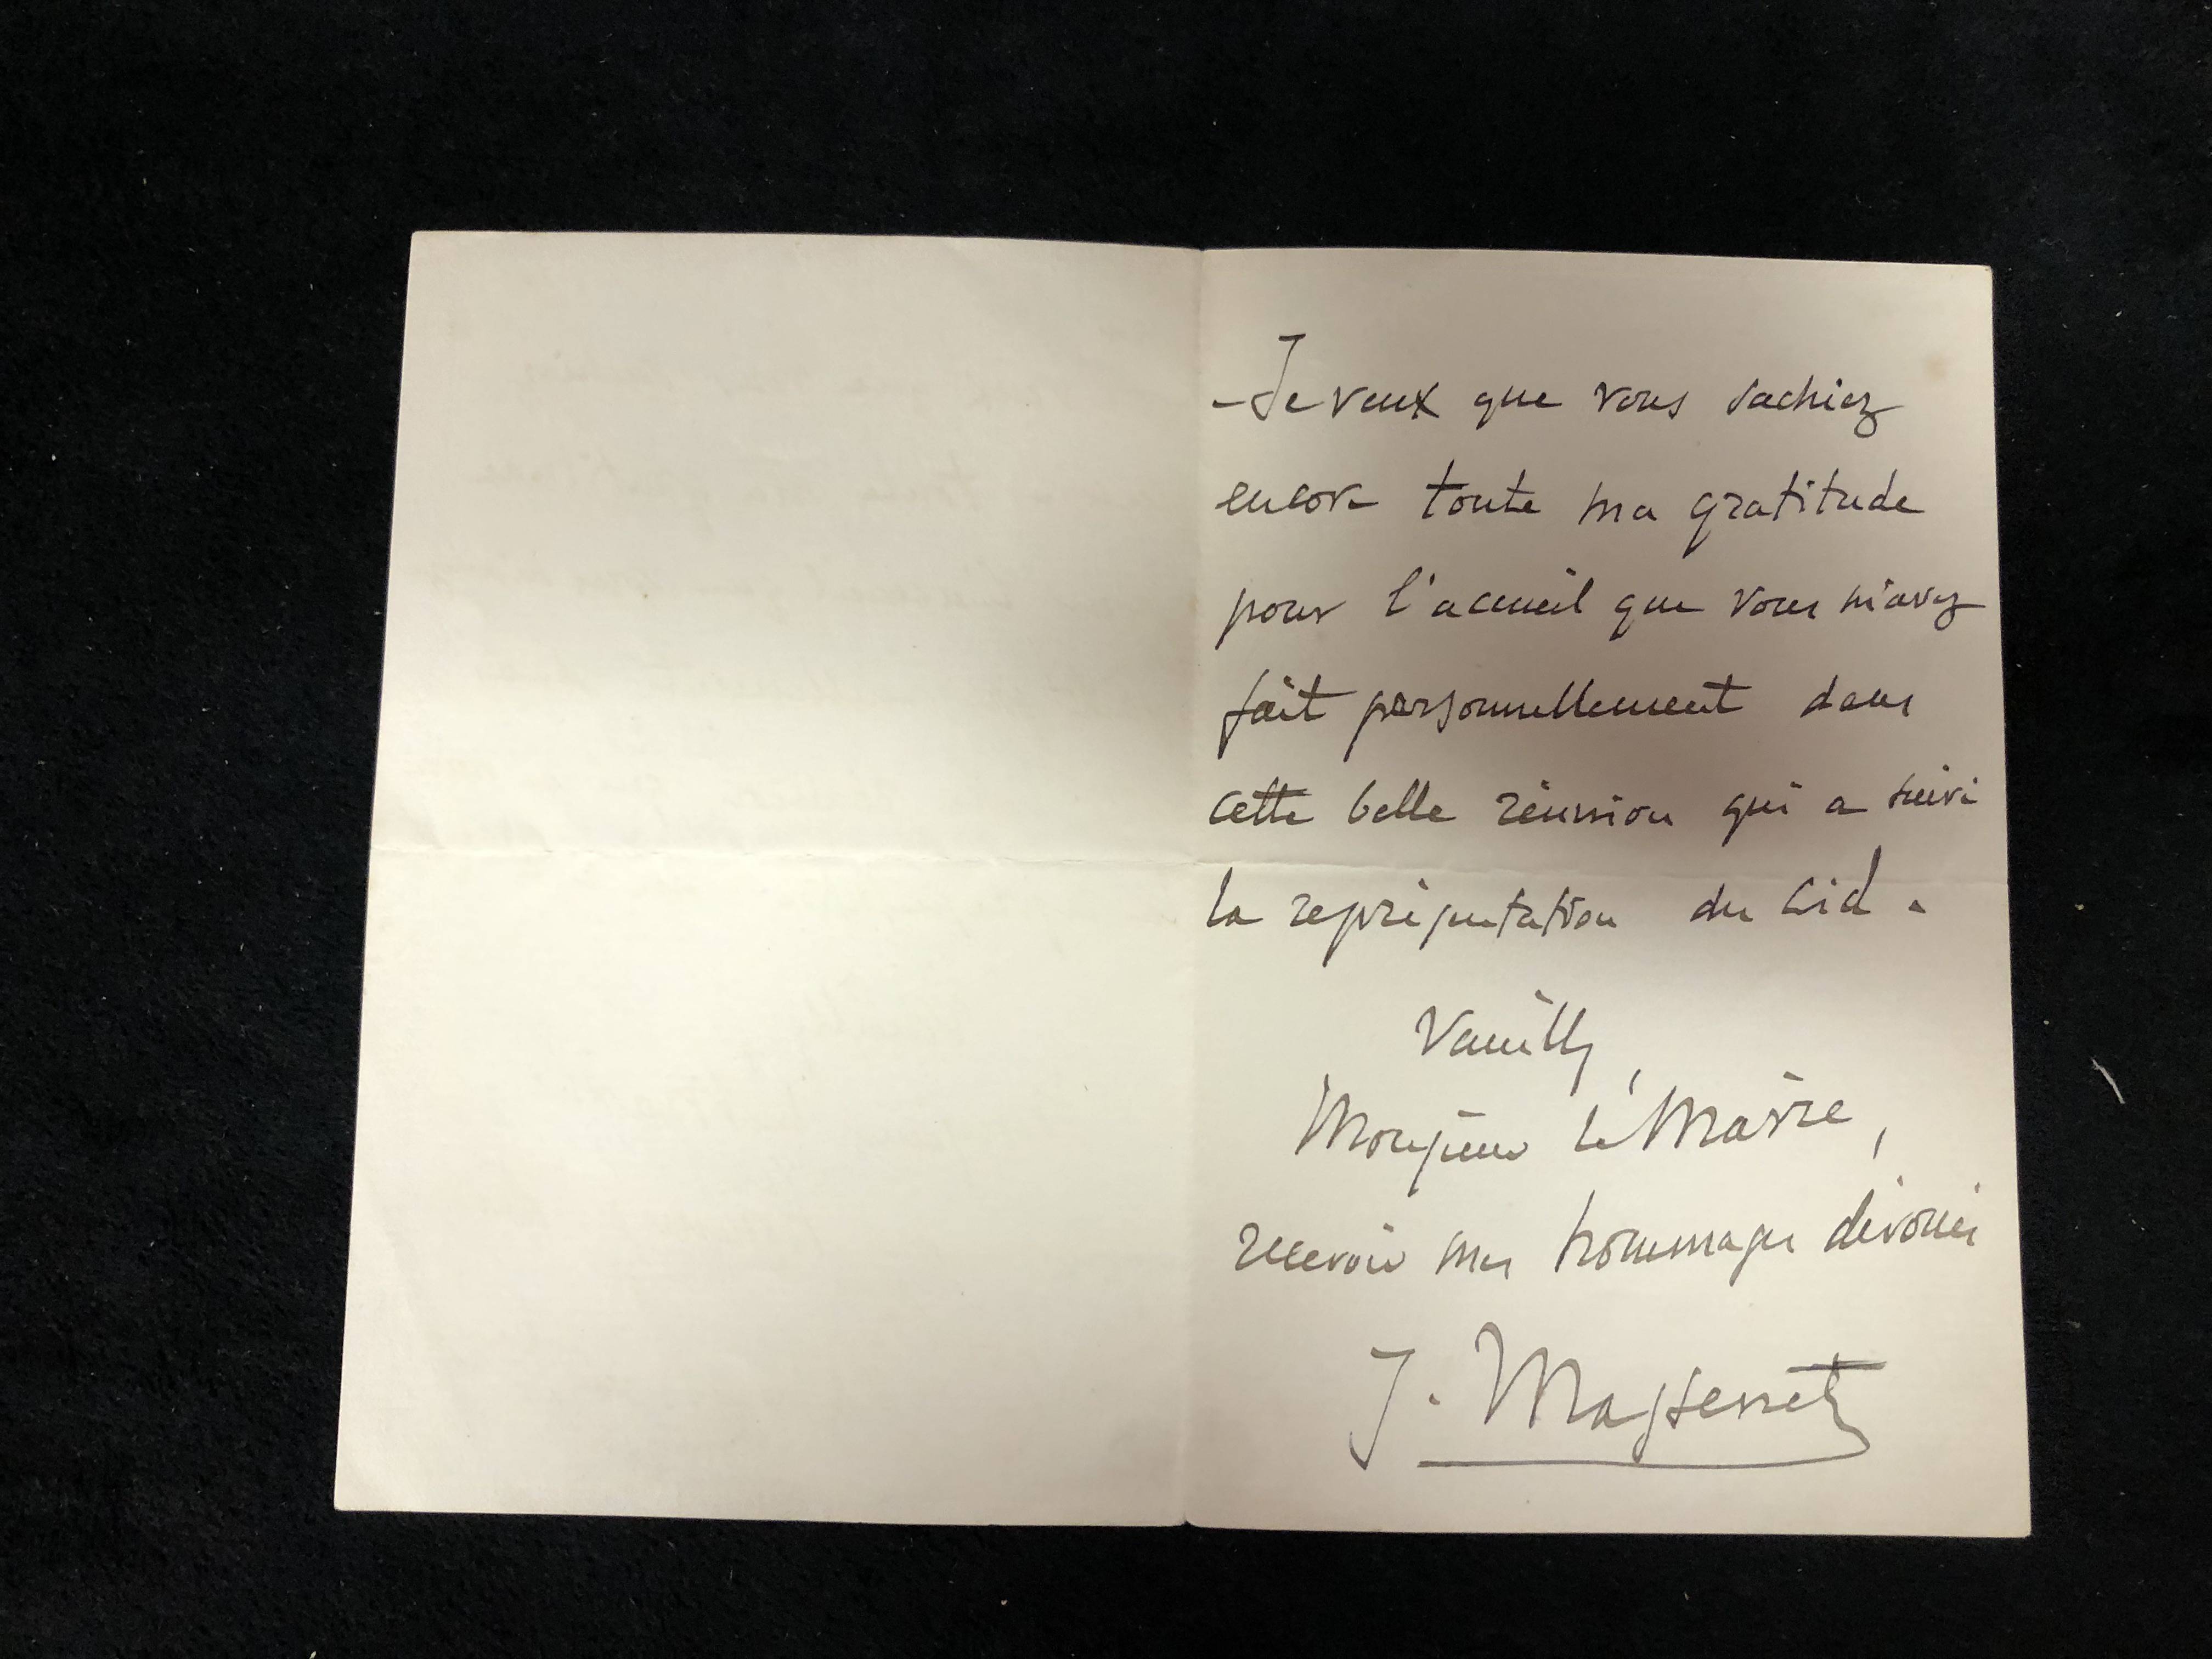 - Je veux que vous sachiez
encore toute ma gratitude
pour l'accueil que vous m'avez
fait personnellement dans
cette belle réunion qui a suivi
la représentation du Cid .
Veuillez,
Monsieur le Maire,
recevoir mes hommages dévoués
J. Massenet